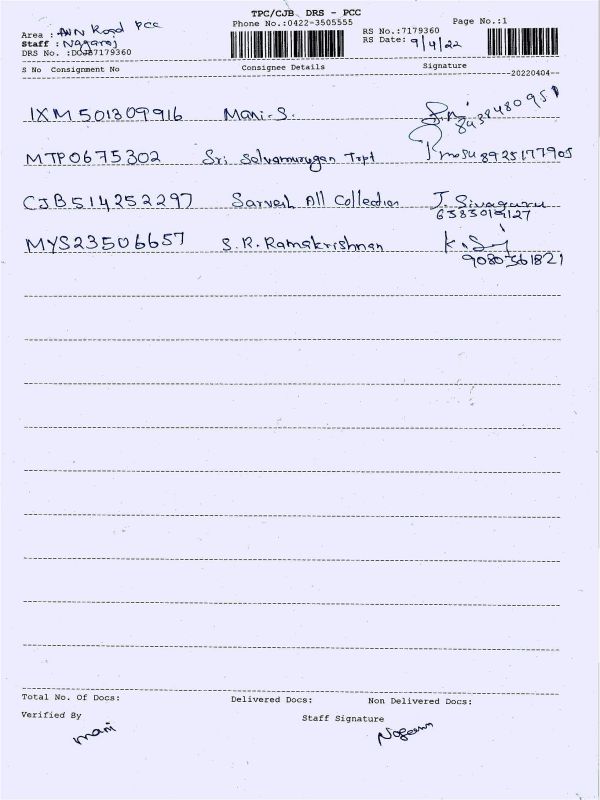 TPC/CJB DRS - PCC
Phone No.:0422-3505555 Page No.:1
Area : AVN Road PCC RS No.:7179360
Staff : Nagaraj RS Date: 9/4/22
DRS No. :DCJB7179360
S No Consignment No Consignee Details Signature
20220404
IXM501309916 Mani.S. 8438480951
MTP0675302 Sri Selvamurugan Trpt 8925177905
CJB514252297 Sarvesh All Collection J. Sivaguru
6383019127
MYS23506657 S.R. Ramakrishnan
9080561821
Total No. Of Docs: Delivered Docs: Non Delivered Docs:
Verified By Staff Signature
mani